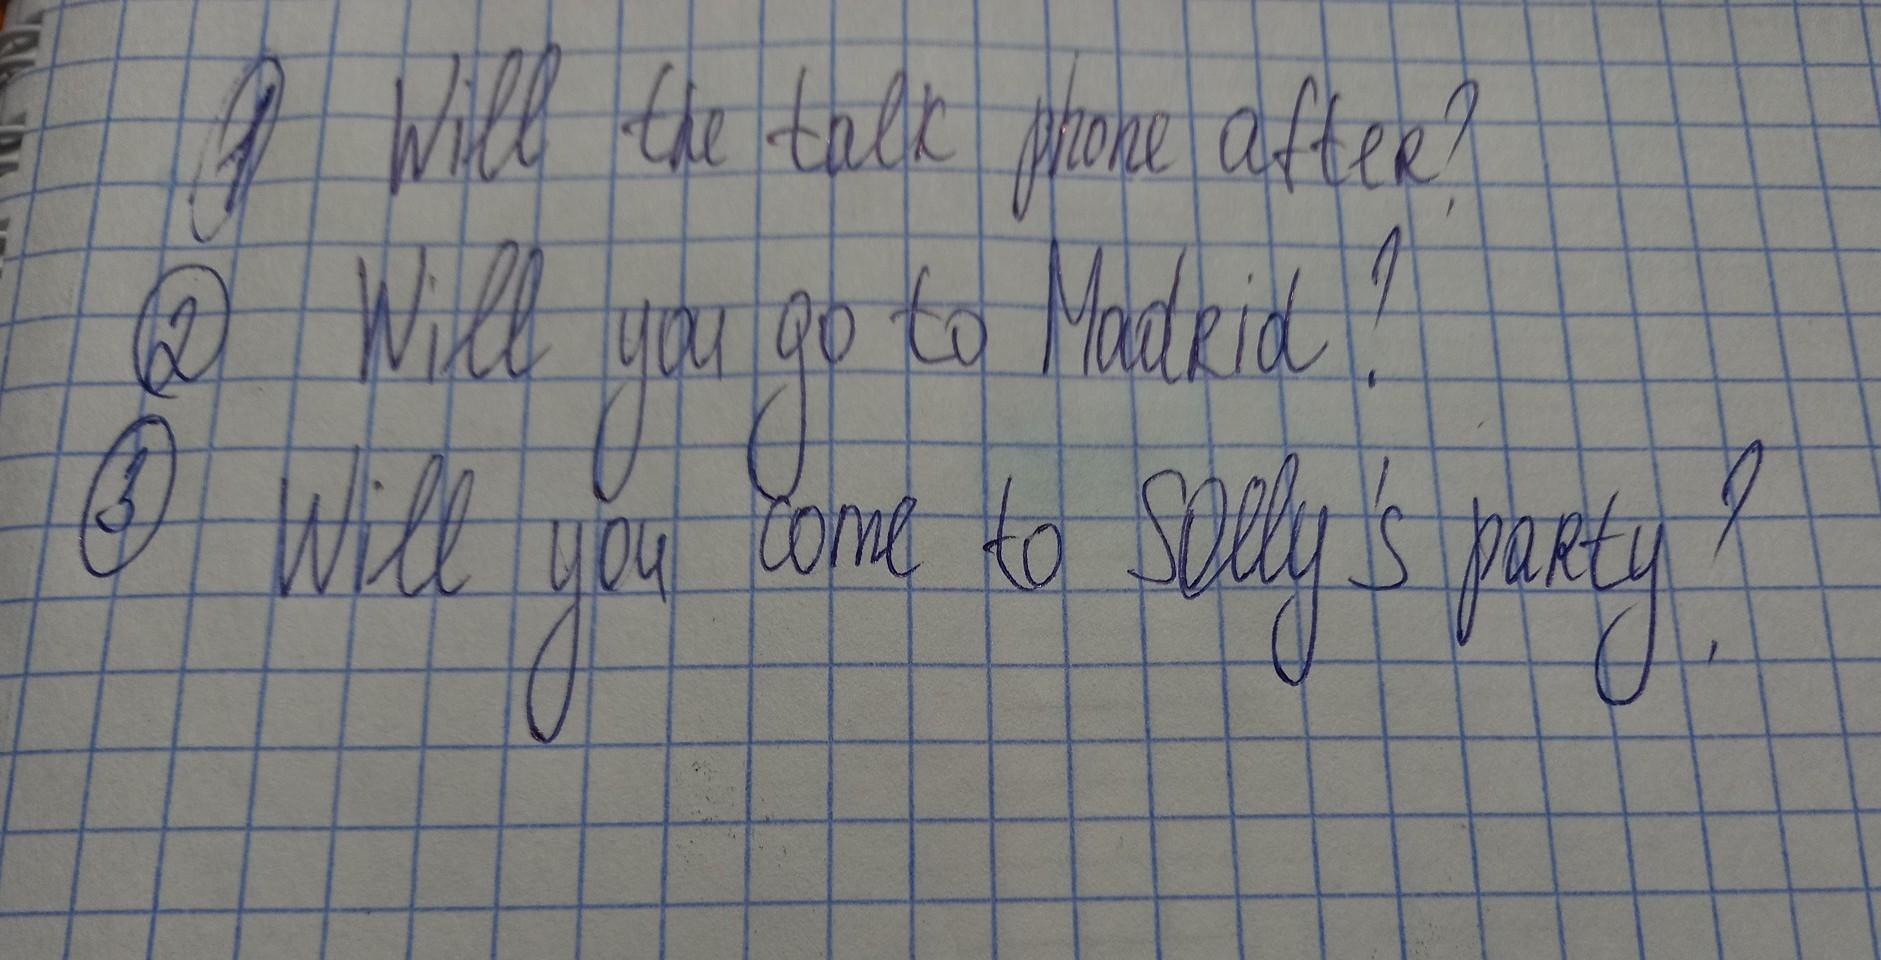 1 Will the talk phone after?
2 Will you go to Madrid?
3 Will you come to Solly's party?